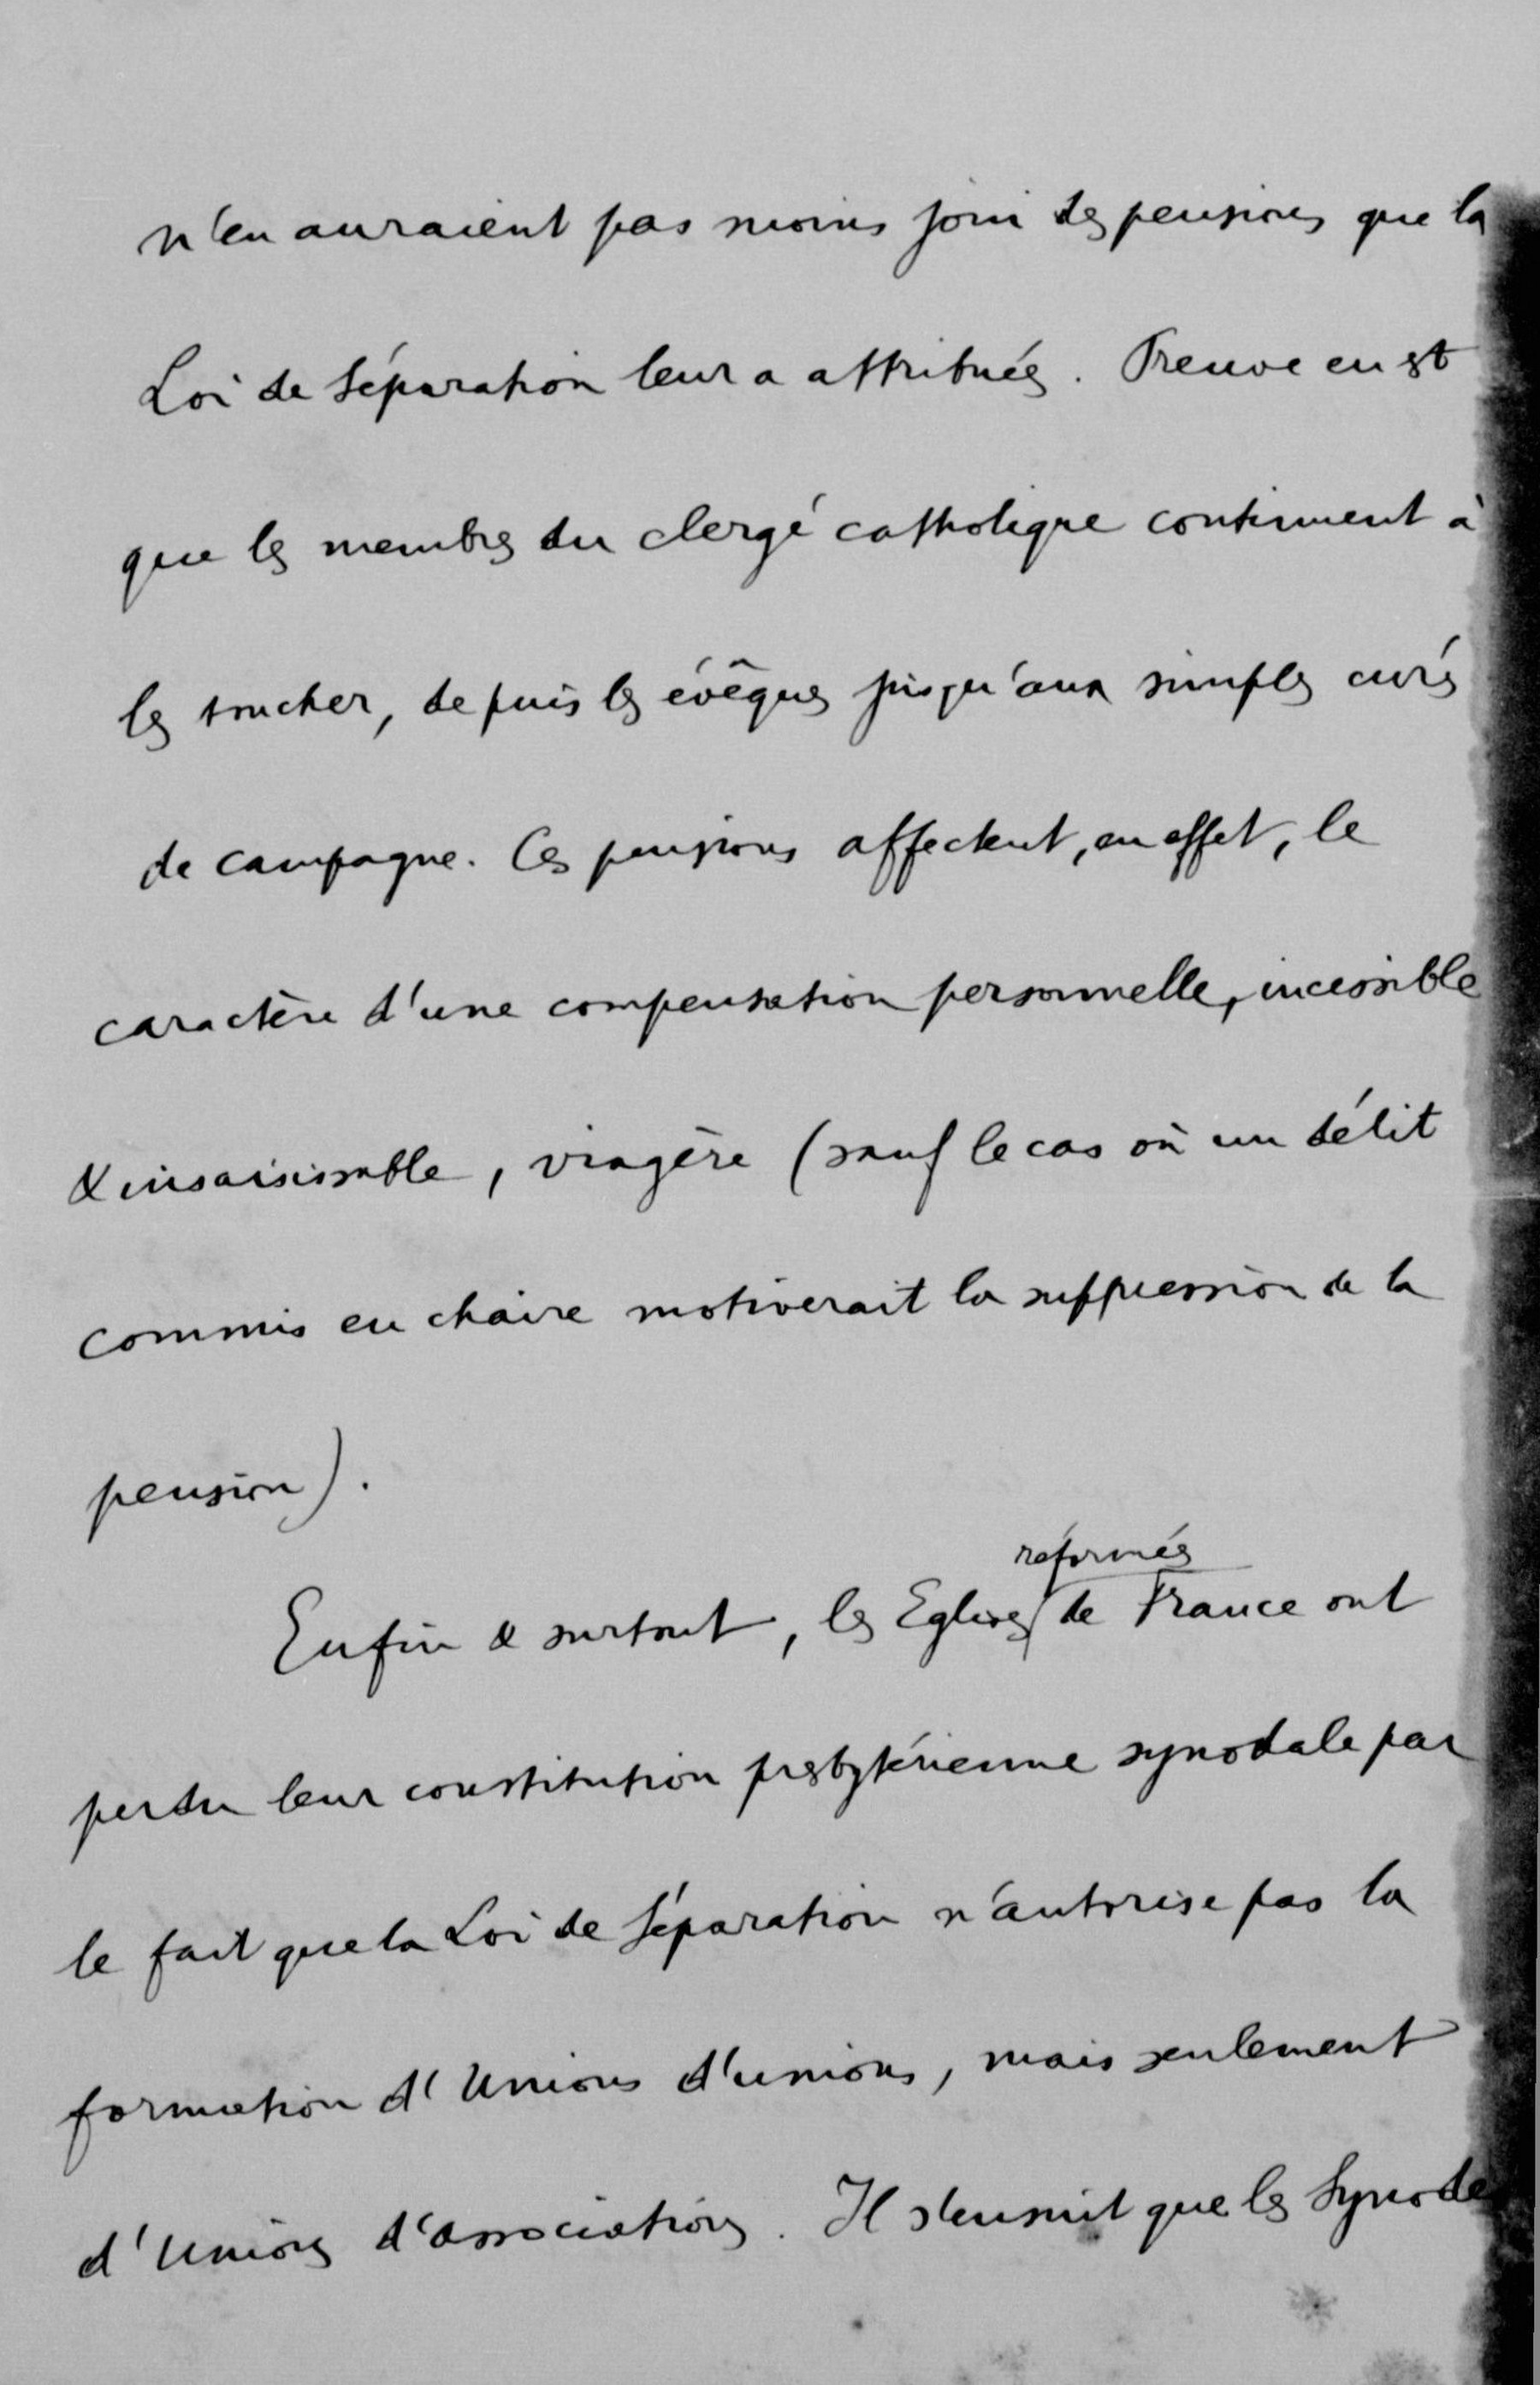 n'en auraient pas moins joui des pensions que la
Loi de Séparation leur a attribuées. Preuve en est
que les membres du clergé catholique continuent à
les toucher, depuis les évêques jusqu'aux simples curés
de campagne. Ces pensions affectent, en effet, le
caractère d'une compensation personnelle, incessible
& insaisissable, viagère (sauf le cas où un délit
commis en chaire motiverait la suppression de la
pension).
réformées
Enfin & surtout, les Eglises de France ont
perdu leur constitution presbytérienne synodale par
le fait que la Loi de Séparation n'autorise pas la
formation d'Unions d'unions, mais seulement
d'Unions d'associations. Il s'ensuit que les Synode